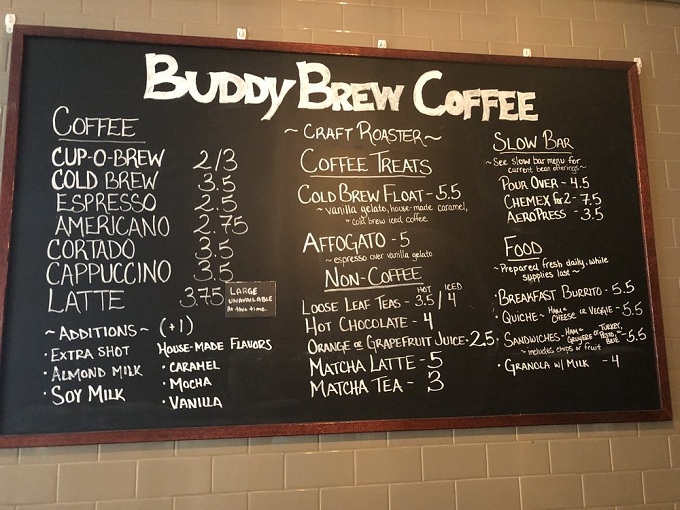 BUDDY BREW COFFEE
COFFEE
CUP-O-BREW 2/3
COLD BREW 3.5
ESPRESSO 2.5
AMERICANO 2.75
CORTADO 3.5
CAPPUCCINO 3.5
LATTE 3.75
LARGE
UNAVAILABLE
At this time.
~ADDITIONS~ (+1)
·EXTRA SHOT
·ALMOND MILK
·SOY MILK
HOUSE-MADE FLAVORS
·CARAMEL
·MOCHA
·VANILLA
~CRAFT ROASTER~
COFFEE TREATS
COLD BREW FLOAT-5.5
~vanilla gelato, house-made caramel,
+ cold brew iced coffee
AFFOGATO-5
~espresso over vanilla gelato
NON-COFFEE
HOT ICED
LOOSE LEAF TEAS-3.5/4
HOT CHOCOLATE-4
ORANGE OR GRAPEFRUIT JUICE-2.5
MATCHA LATTE-5
MATCHA TEA-3
SLOW BAR
~See slow bar menu for
current bean offerings~
POUR OVER-4.5
CHEMEX for 2-7.5
AEROPRESS-3.5
FOOD
~Prepared fresh daily, while
supplies last~
·BREAKFAST BURRITO-5.5
·QUICHE-HAM & CHEESE OR VEGGIE-5.5
·SANDWICHES-HAM & GRUYERE OR TURKEY, PESTO, BRIE-5.5
~includes chips or fruit
·GRANOLA W/ MILK-4